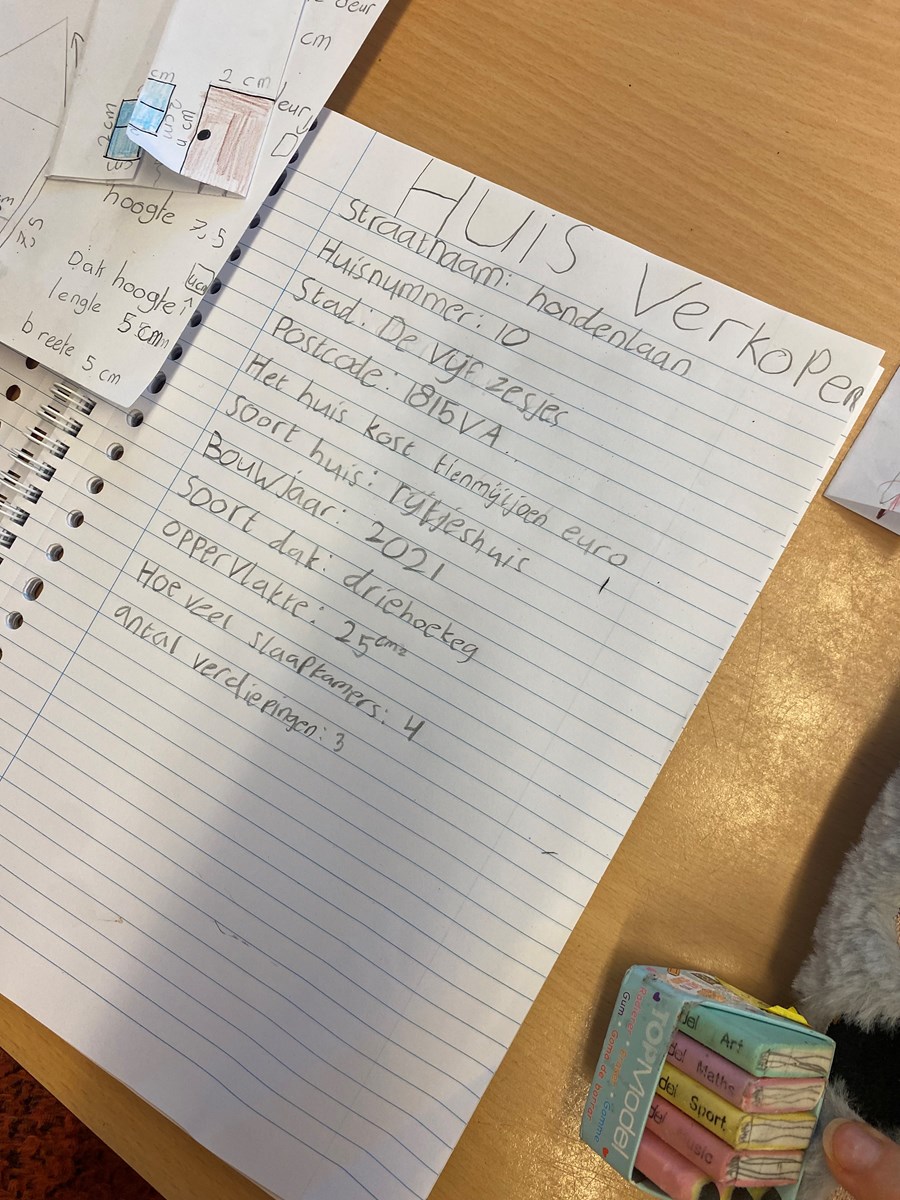 deur
cm
cm
2 cm
2 cm
2 cm
hoogte 7,5
Dak hoogte
lengte 5 cm
breete 5 cm
Huis verkopen
Straatnaam: hondenlaan
Huisnummer: 10
Stad: De vijf zesjes
Postcode: 1815VA
Het huis kost tienmijljoen euro
soort huis: rijtjeshuis
Bouwjaar: 2021
soort dak: driehoekeg
oppervlakte: 25 cm2
Hoe veel slaapkamers: 4
antal verdiepingen: 3
TOPModel
Gum
Gomme
Goma de borrar
Art
Maths
Sport
Music